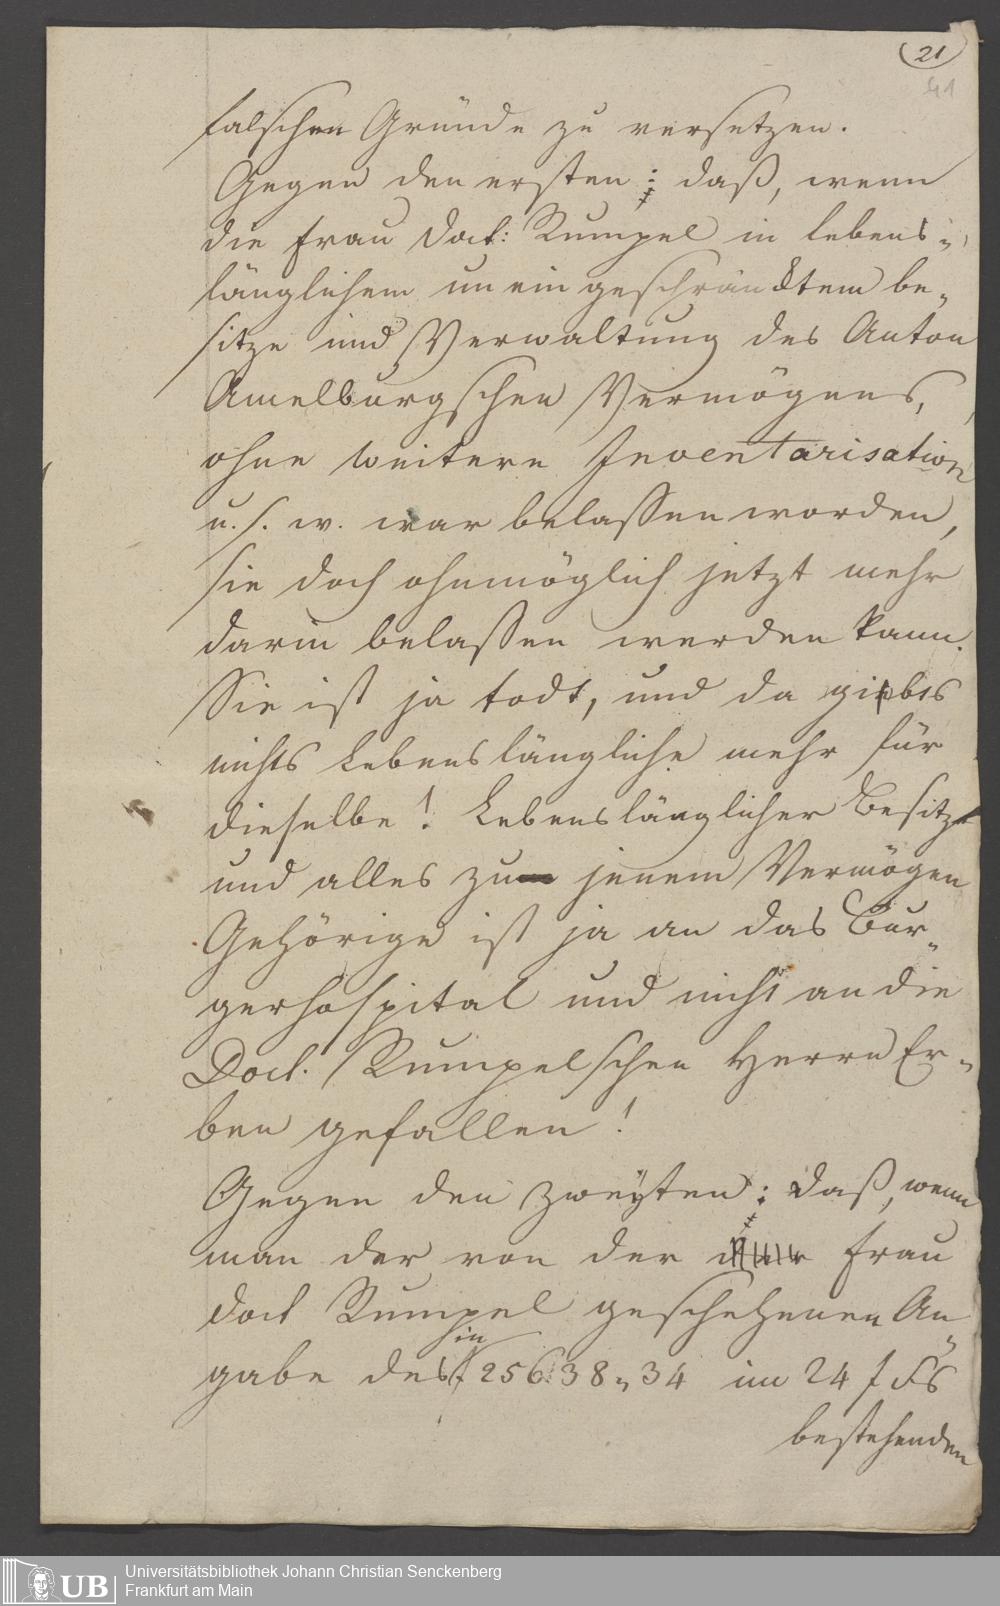 21
41
falschen Gründe zu versetzen.
Gegen den ersten: daß, wenn
die Frau Doct: Rumpel in lebens-
länglichem uneingeschräncktem be-
sitze und Verwaltung des Anton
Amelburgschen Vermögens,
ohne weitere Inventarisation
u. s. w. war belassen worden,
sie doch ohnmöglich jetzt mehr
darin belassen werden kann.
Sie ist ja todt, und da giebts
nichts Lebenslängliche mehr für
dieselbe! Lebenslänglicher Besitz
und alles zu jenem Vermögen
Gehörige ist ja an das Bür-
gerhospital und nicht an die
Doct. Rumpelschen Herrn Er-
ben gefallen!
Gegen den zweyten: daß, wenn
man der von der Frau
Doct Rumpel geschehenen An-
gabe des in f 25638 „ 34 im 24 f Fs
bestehenden
UB
Universitätsbibliothek Johann Christian Senckenberg
Frankfurt am Main